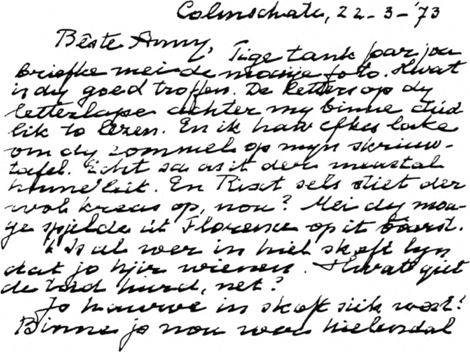 Colmschate, 22-3-'73
Bêste Anny, Tige tank foar jou
briefke mei de moaie foto. Hwat
is dy goed troffen. De letters op dy
letterkape achter my binne dúd
lik to lêzen. En ik haw efkes lake
om dy rommel op myn skriuw-
tafel. Echt sa as it der meastal
hinne leit. En Riset sels stiet der
wol kreas op, nou? Mei dy moa-
je spjelde út Florence op it boarst.
't Is al wer in hiel skoft lyn
dat jo hjir wienen. Hwat giet
de tiid hurd, net?
Jo hawwe in skoft siik west?
Binne jo nou wer hielendal